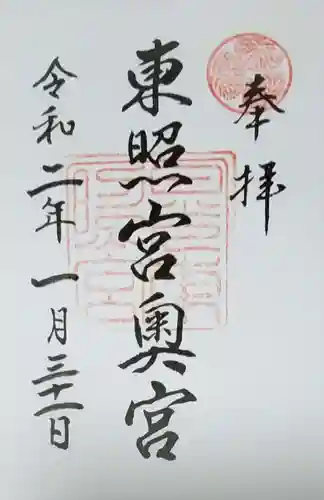 奉拝
東照宮奥宮
令和二年一月三十一日